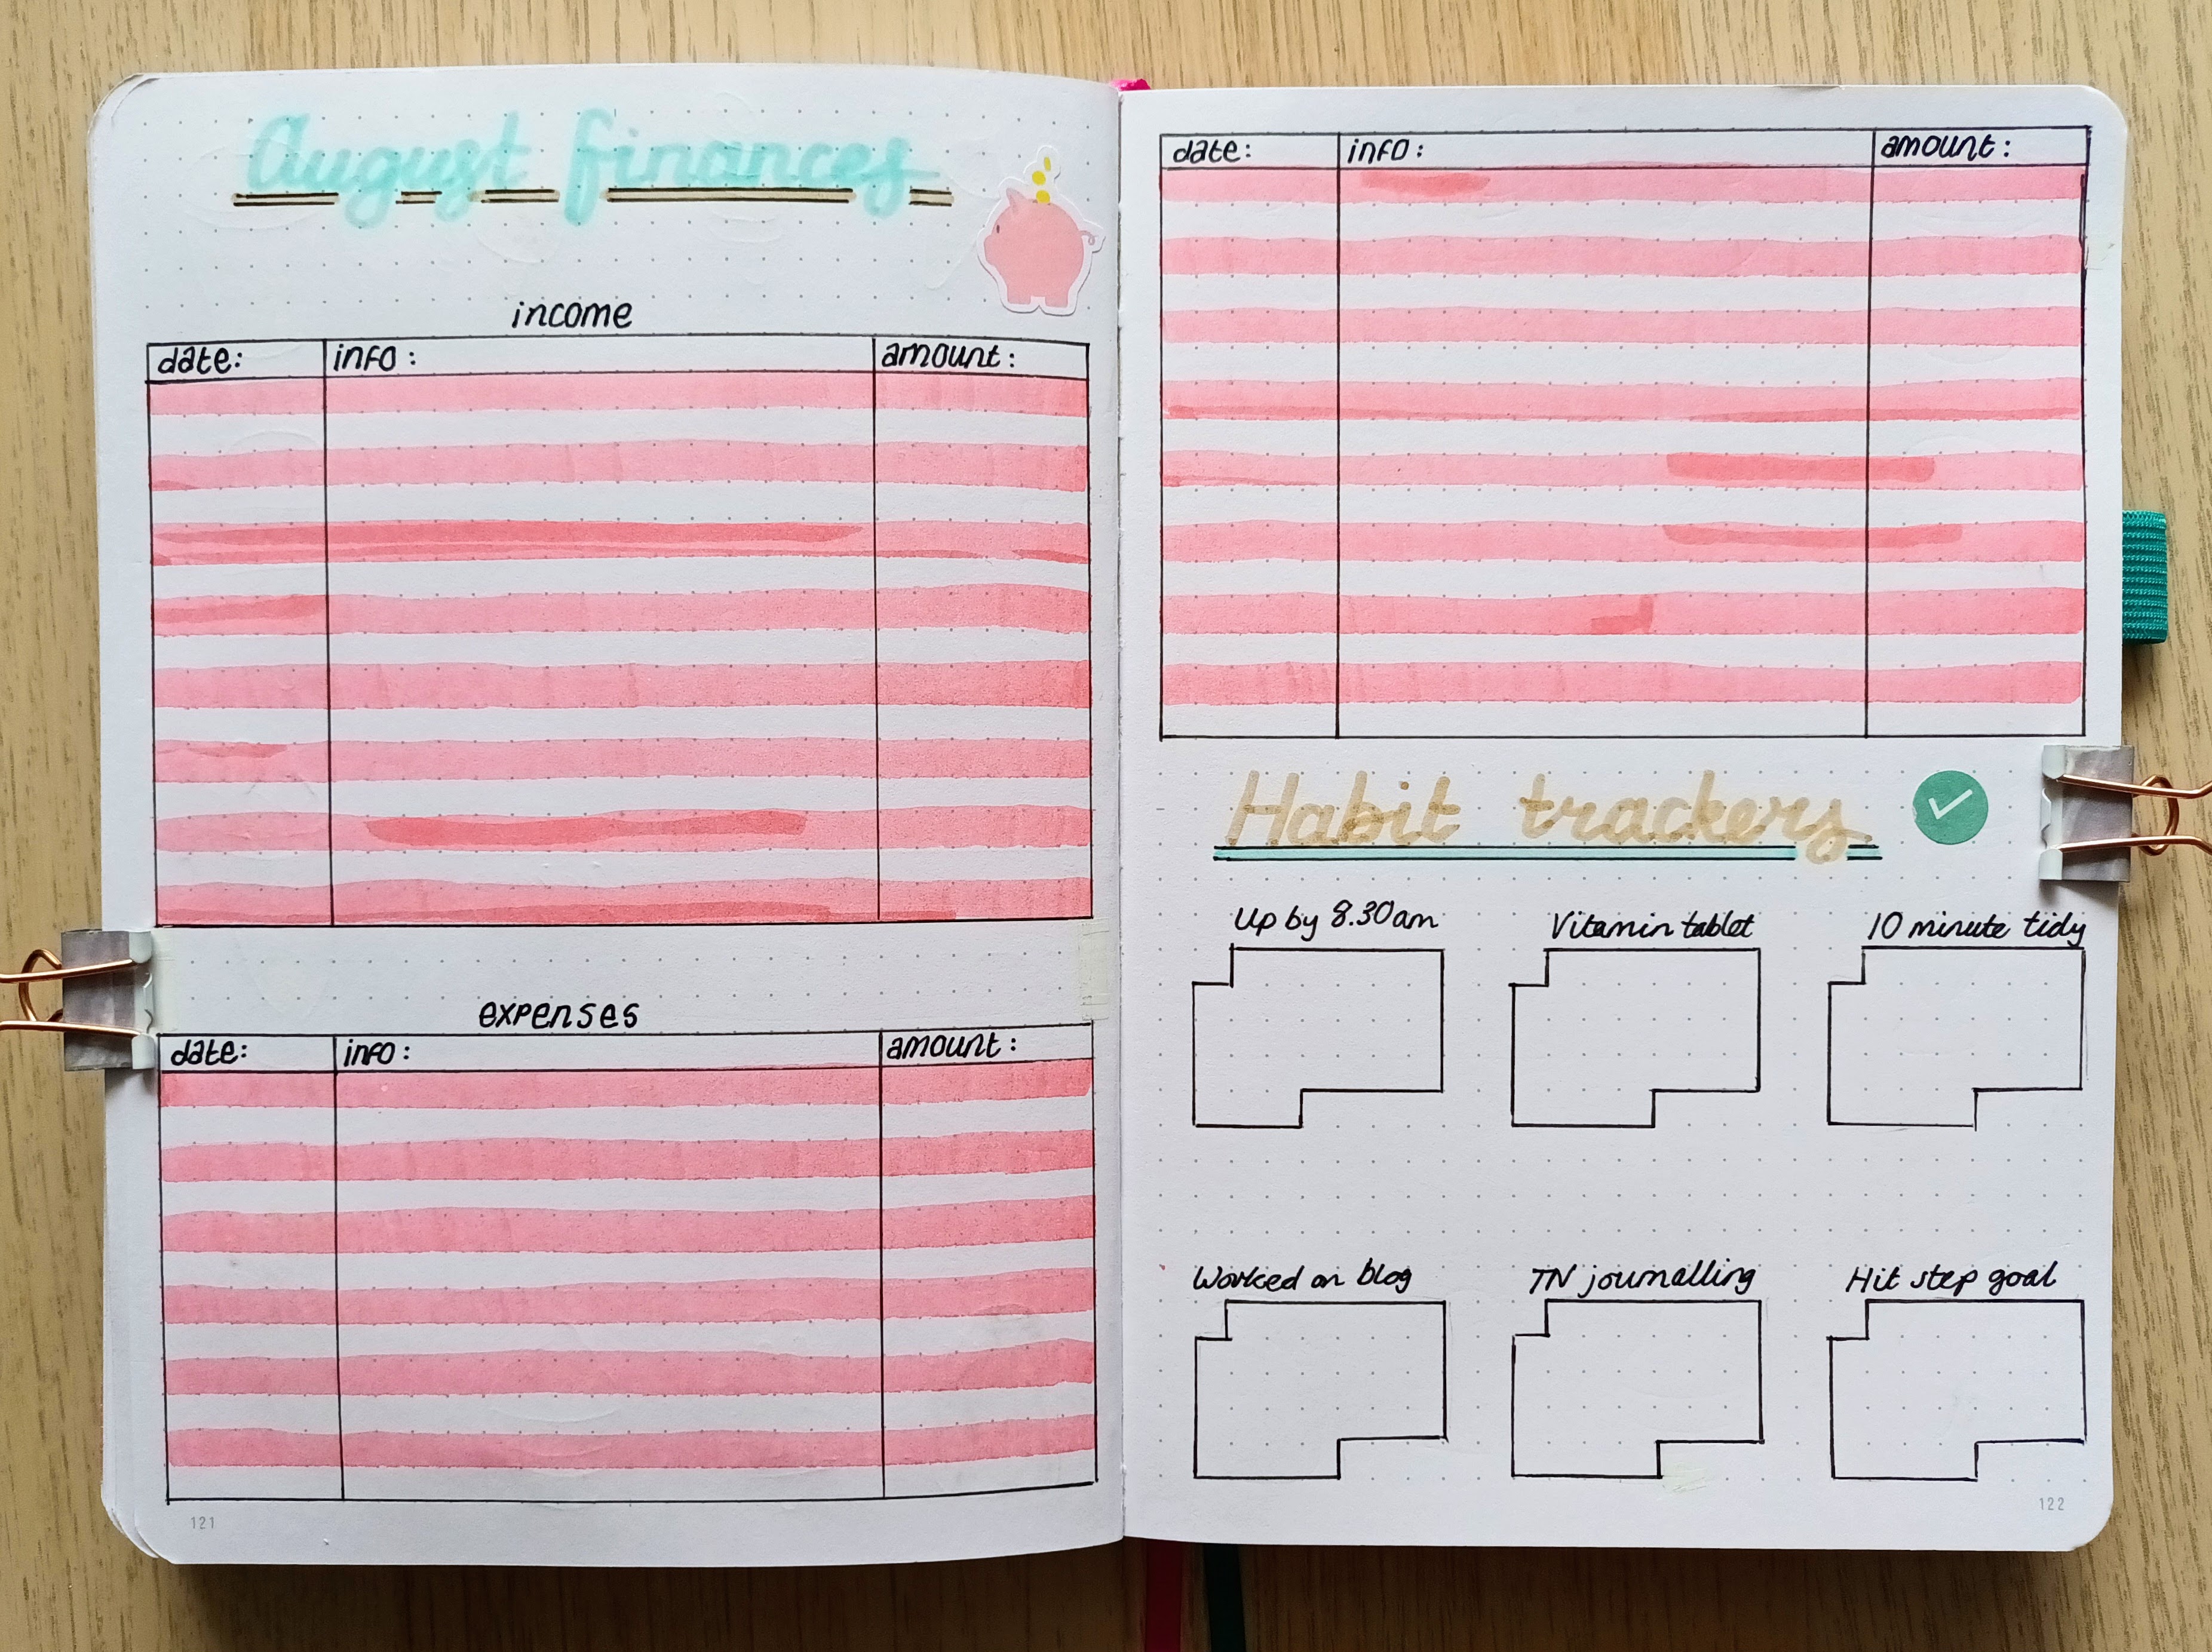 August finances
income
date: info: amount:
expenses
date: info: amount:
121
date: info: amount:
Habit trackers
Up by 8.30am Vitamin tablet 10 minute tidy
Worked on blog TN journalling Hit step goal
122